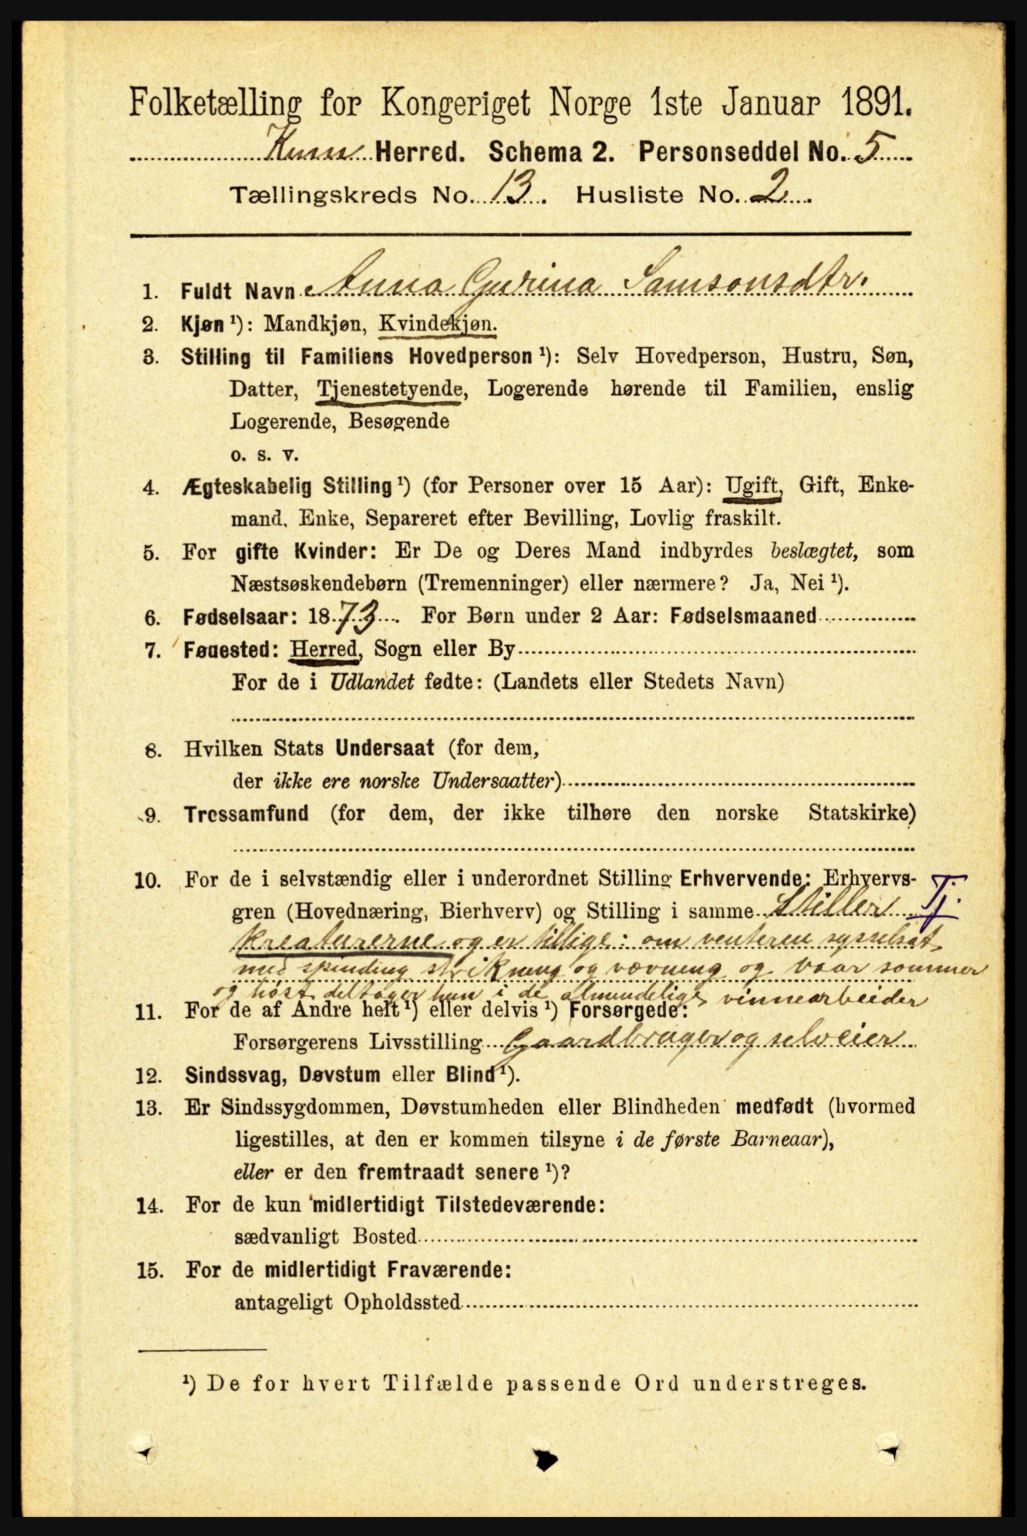 Folketælling for Kongeriget Norge 1ste Januar 1891.
Kinn Herred. Schema 2. Personseddel No. 5
Tællingskreds No. 13. Husliste No. 2.
1. Fuldt Navn Anna Gurina Samsonsdtr.
2. Kjøn ¹): Mandkjøn, Kvindekjøn.
3. Stilling til Familiens Hovedperson ¹): Selv Hovedperson, Hustru, Søn,
Datter, Tjenestetyende, Logerende hørende til Familien, enslig
Logerende, Besøgende
o. s. v.
4. Ægteskabelig Stilling ¹) (for Personer over 15 Aar): Ugift, Gift, Enke-
mand, Enke, Separeret efter Bevilling, Lovlig fraskilt.
5. For gifte Kvinder: Er De og Deres Mand indbyrdes beslægtet, som
Næstsøskendebørn (Tremenninger) eller nærmere? Ja, Nei ¹).
6. Fødselsaar: 1873. For Børn under 2 Aar: Fødselsmaaned
7. Fødested: Herred, Sogn eller By
For de i Udlandet fødte: (Landets eller Stedets Navn)
8. Hvilken Stats Undersaat (for dem,
der ikke ere norske Undersaatter)
9. Trossamfund (for dem, der ikke tilhøre den norske Statskirke)
10. For de i selvstændig eller i underordnet Stilling Erhvervende: Erhvervs-
gren (Hovednæring, Bierhverv) og Stilling i samme Stiller Tj.
kreaturerne og er tillige: om venteren sysselsat
med spinding strikning og vævning og vaar sommer
og høst deltager hun i de almindelige vinnearbeider
11. For de af Andre helt ¹) eller delvis ¹) Forsørgede:
Forsørgerens Livsstilling Gaardbruger og selveier
12. Sindssvag, Døvstum eller Blind ¹).
13. Er Sindssygdommen, Døvstumheden eller Blindheden medfødt (hvormed
ligestilles, at den er kommen tilsyne i de første Barneaar),
eller er den fremtraadt senere ¹)?
14. For de kun midlertidigt Tilstedeværende:
sædvanligt Bosted
15. For de midlertidigt Fraværende:
antageligt Opholdssted
¹) De for hvert Tilfælde passende Ord understreges.